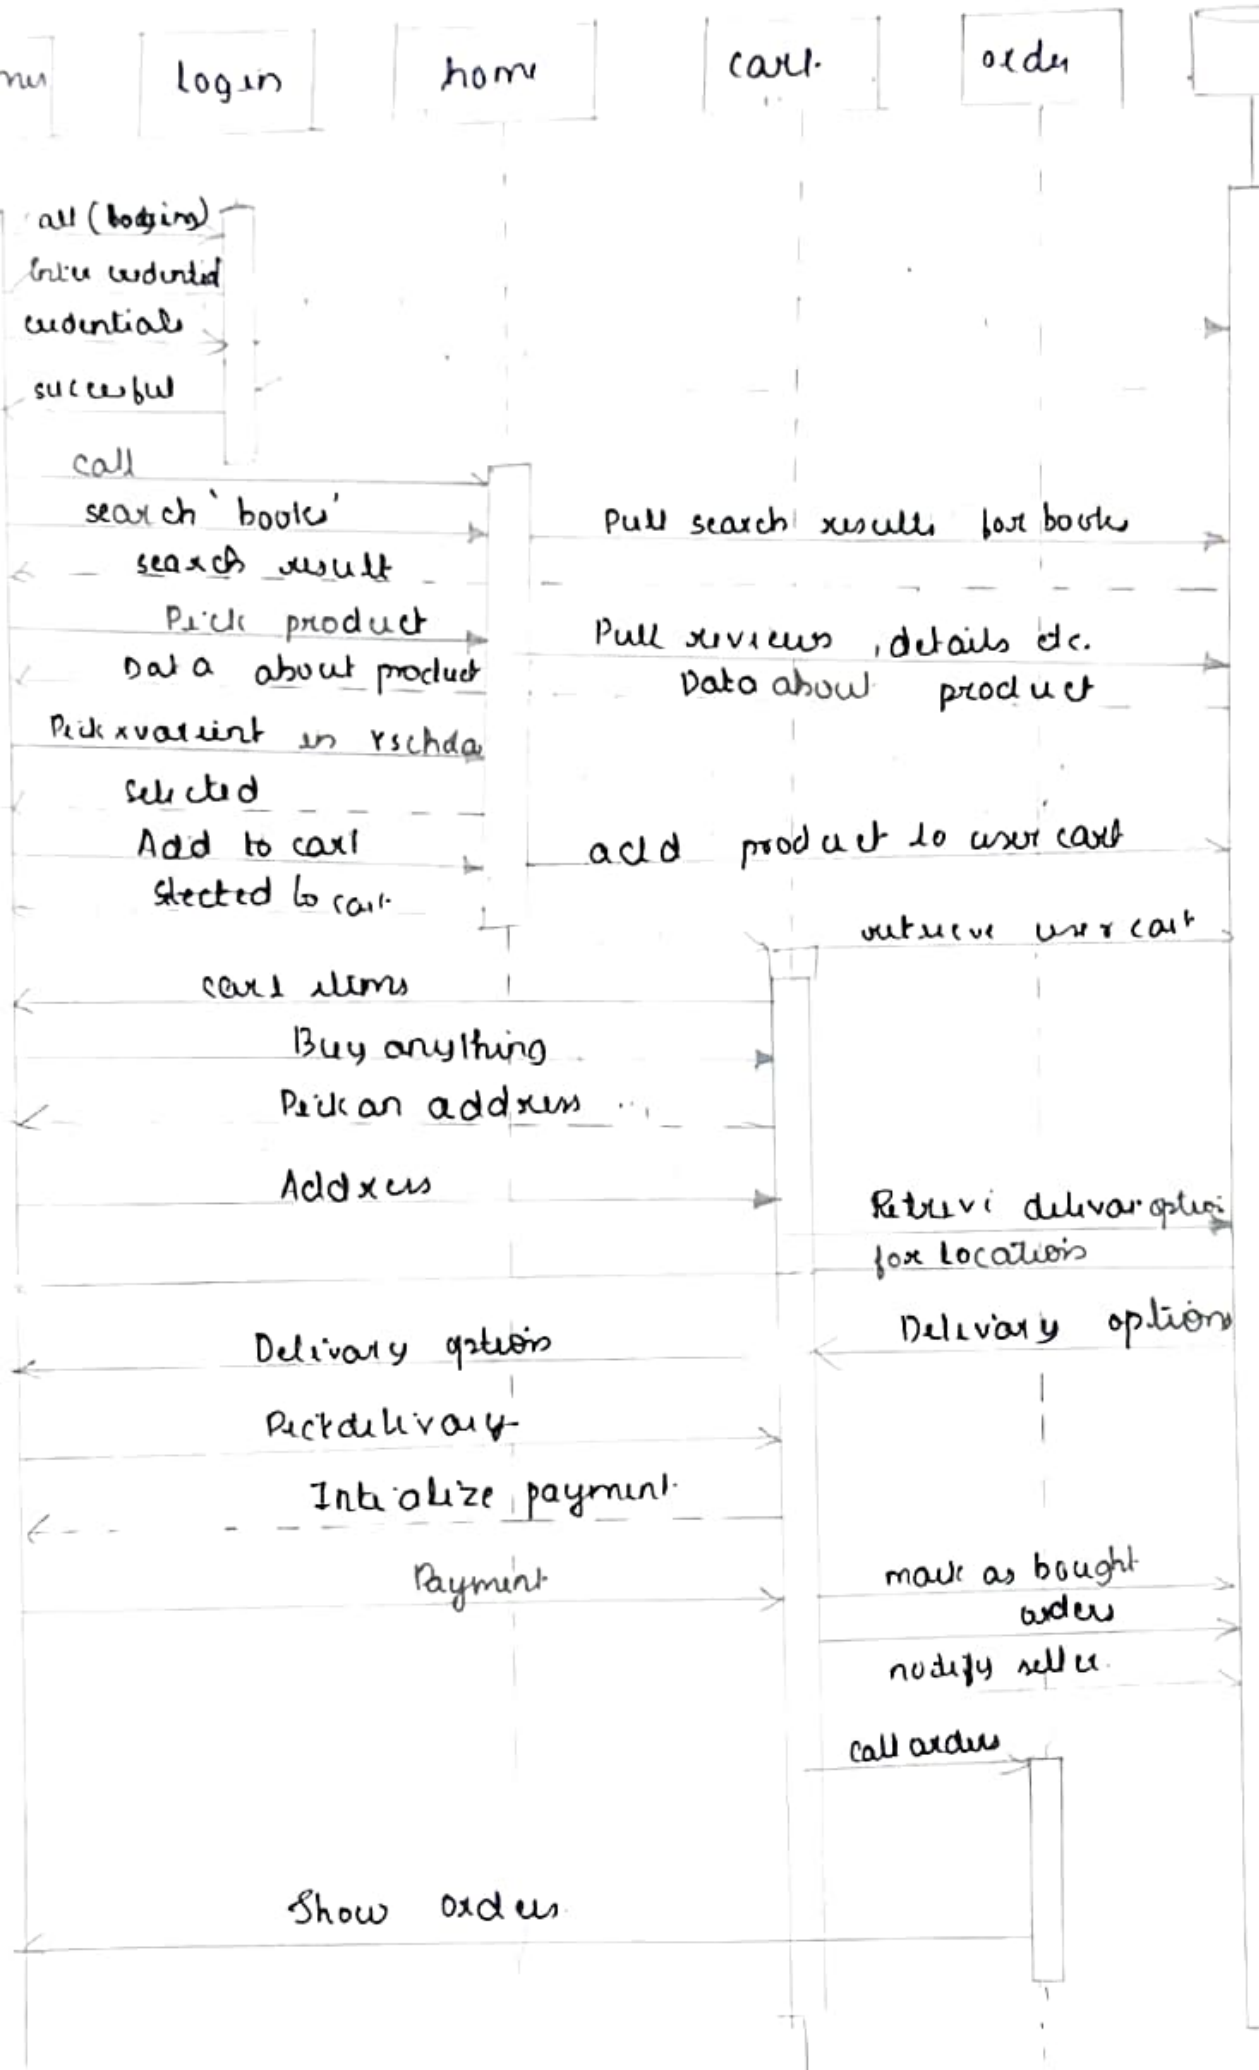 login home cart order
call (logging)
credentials
succesful
call
search 'books'
Pull search results for books
search result
Pick product
Pull reviews , details etc.
Data about product
Data about product
Pick
selected
Add to cart
add product to user cart
Slected to cart
retrieve user cart
cart items
Buy anything
Pick an address
Address
Retrevi delivar option
for location
Delivary options
Delivary options
Pict delivary
payment
Payment
mark as bought
orders
notify seller
call orders
Show orders